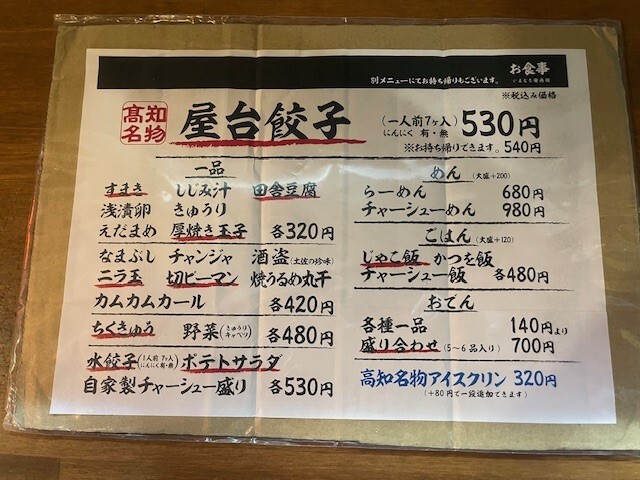 お食事
別メニューにてお持ち帰りもございます。
※税込み価格
高知名物
屋台餃子
(一人前7ヶ入)
にんにく 有・無
530円
※お持ち帰りできます。540円
一品
すまき しじみ汁 田舎豆腐
浅漬卵 きゅうり
えだまめ 厚焼き玉子 各320円
なまぶし チャンジャ 酒盗(土佐の珍味)
ニラ玉 切ピーマン 焼うるめ丸干
カムカムカール 各420円
ちくきゅう 野菜(きゅうり キャベツ) 各480円
水餃子(1人前7ヶ入 にんにく有・無) ポテトサラダ
自家製チャーシュー盛り 各530円
めん (大盛+200)
らーめん 680円
チャーシューめん 980円
ごはん (大盛+120)
じゃこ飯 かつを飯
チャーシュー飯 各480円
おでん
各種一品 140円より
盛り合わせ (5~6品入り) 700円
高知名物アイスクリン 320円
(+80円で一段追加できます)